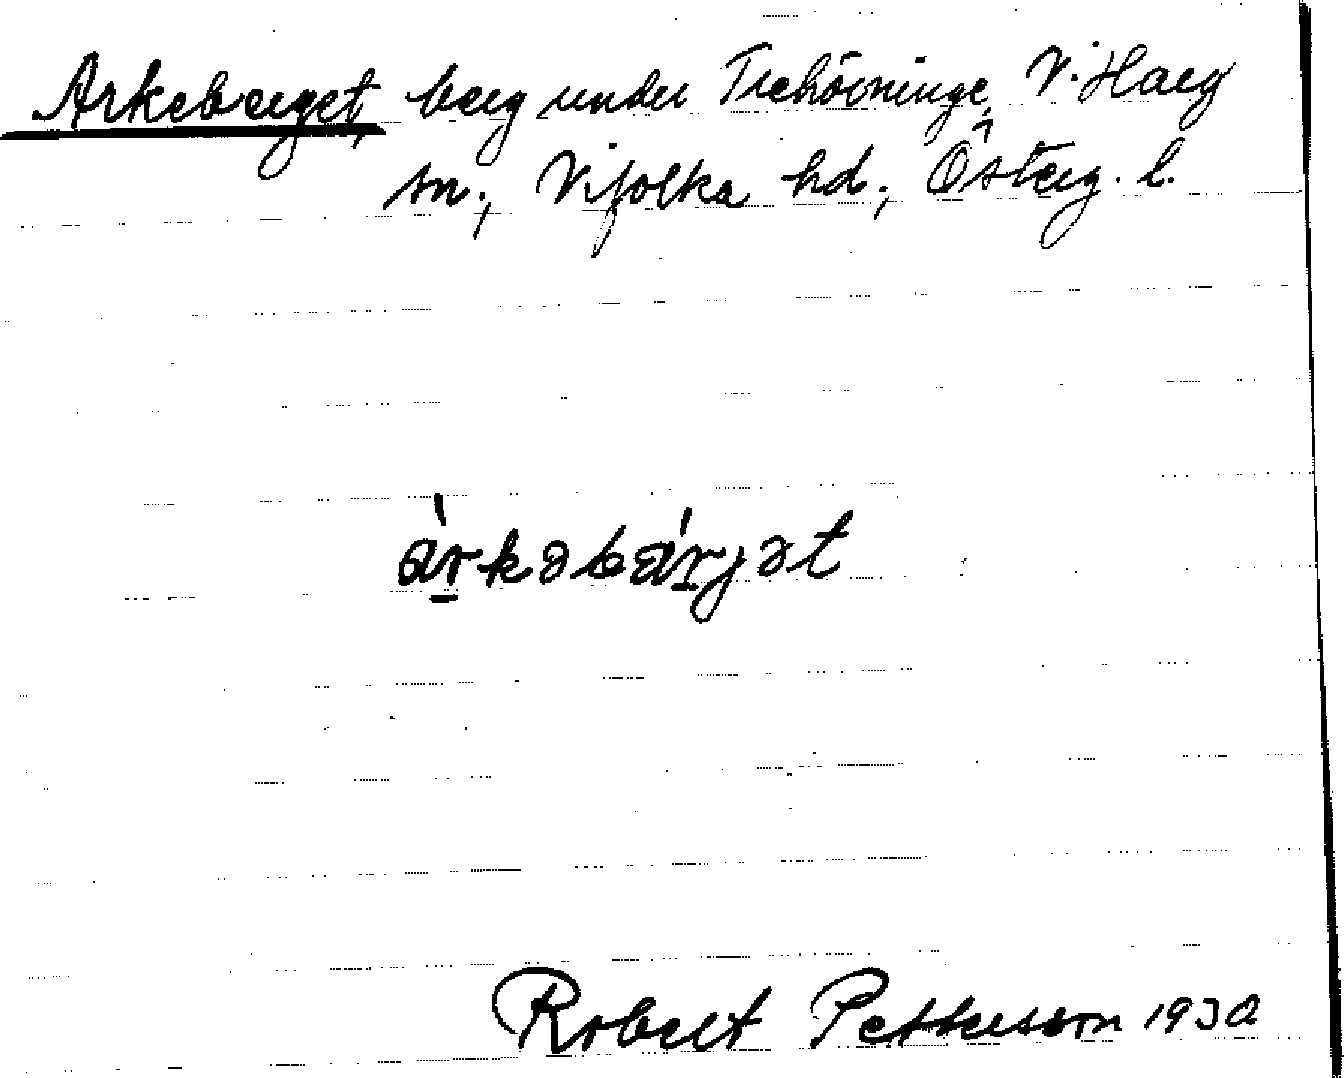 Arkeberget, berg under Trehörninge, V. Harg
sn., Vifolka hd., Österg. l.
àrkəbárjət
Robert Pettersson 1930